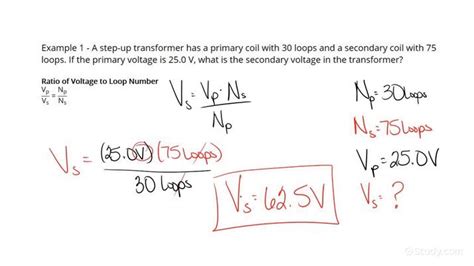 Example 1 - A step-up transformer has a primary coil with 30 loops and a secondary coil with 75
loops. If the primary voltage is 25.0 V, what is the secondary voltage in the transformer?
Ratio of Voltage to Loop Number
Vp/Vs = Np/Ns
Vs = Vp·Ns/Np
Np=30loops
Ns=75loops
Vp=25.0V
Vs=?
Vs = (25.0V)(75loops)/30 loops
Vs=62.5V
©Study.com